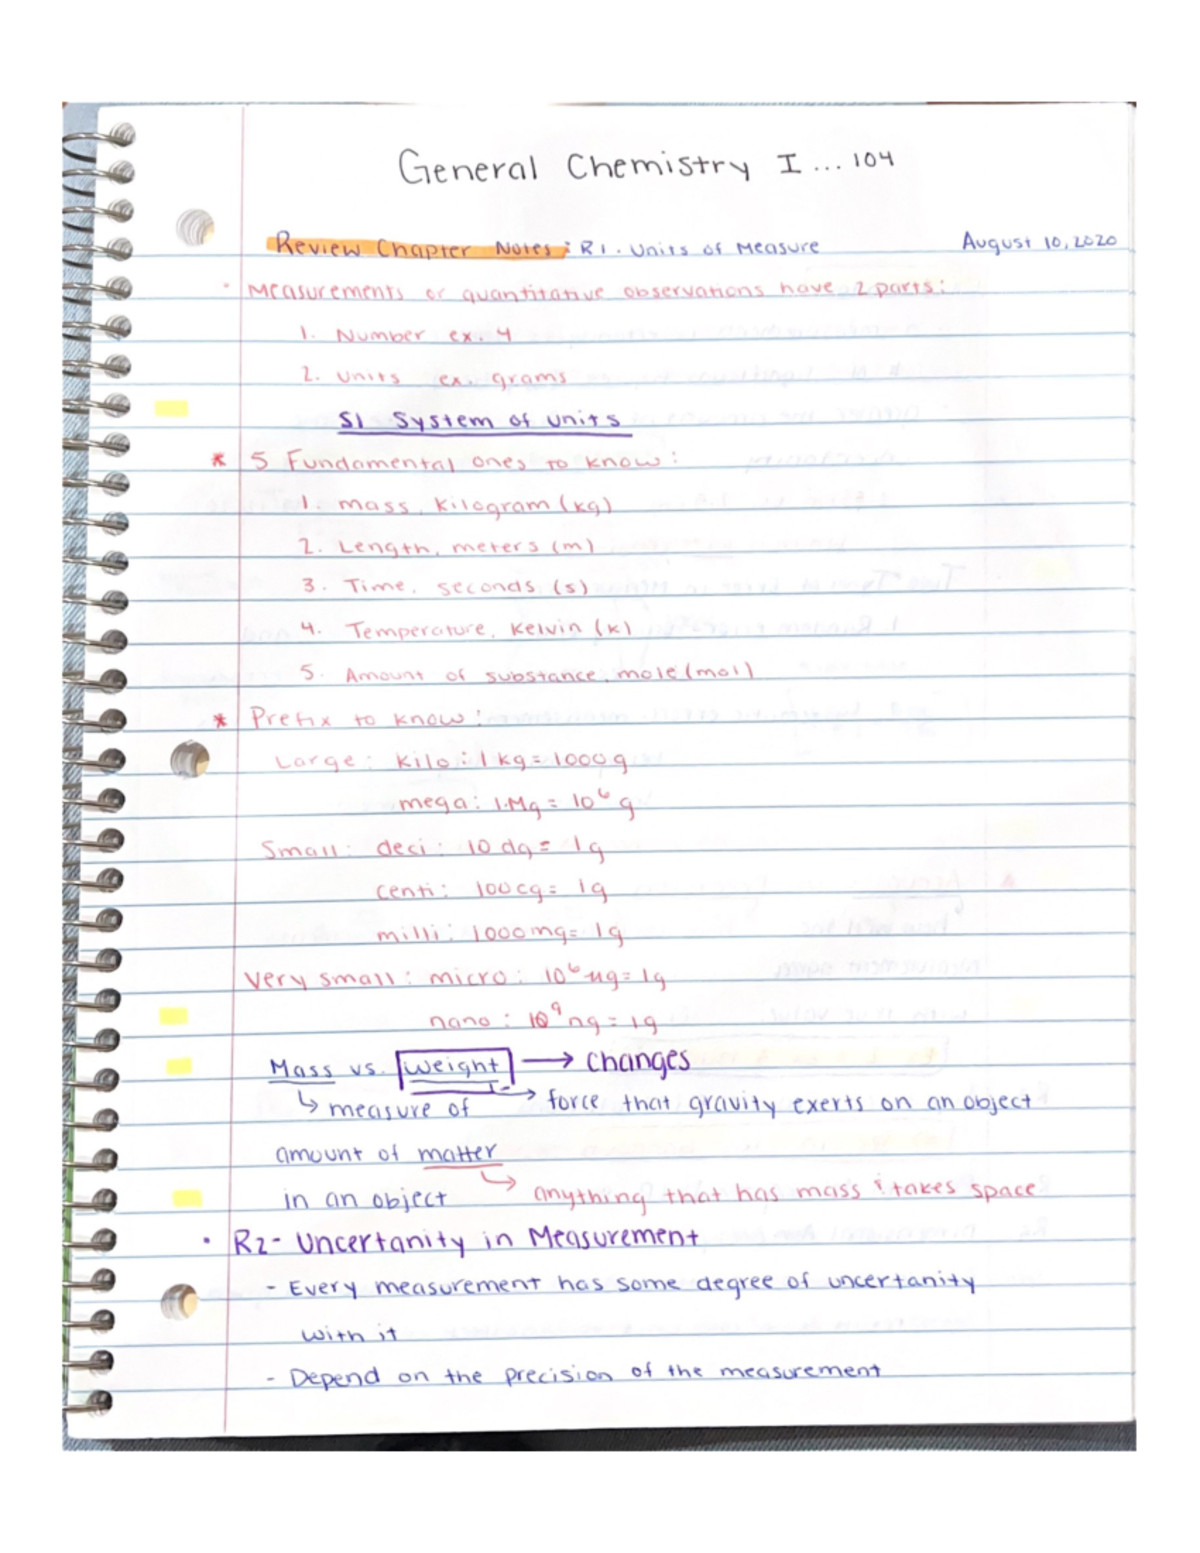 General Chemistry I ... 104
Review Chapter Notes : R1. Units of Measure August 10, 2020
• Measurements or quantitative observations have 2 parts:
1. Number ex. 4
2. units ex. grams
SI System of units
* 5 Fundamental ones to know:
1. mass, kilogram (kg)
2. Length, meters (m)
3. Time, seconds (s)
4. Temperature, Kelvin (K)
5. Amount of substance, mole (mol)
* Prefix to know:
Large: kilo: 1 kg = 1000 g
mega: 1 Mg = 10⁶ g
Small: deci: 10 dg = 1g
centi: 100 cg = 1g
milli: 1000 mg = 1g
Very small: micro: 10⁶ µg = 1g
nano: 10⁹ ng = 1g
Mass vs. Weight → changes
↳ measure of → force that gravity exerts on an object
amount of matter
in an object ↳ anything that has mass & takes space
• R2- Uncertanity in Measurement
- Every measurement has some degree of uncertanity
with it
- Depend on the precision of the measurement